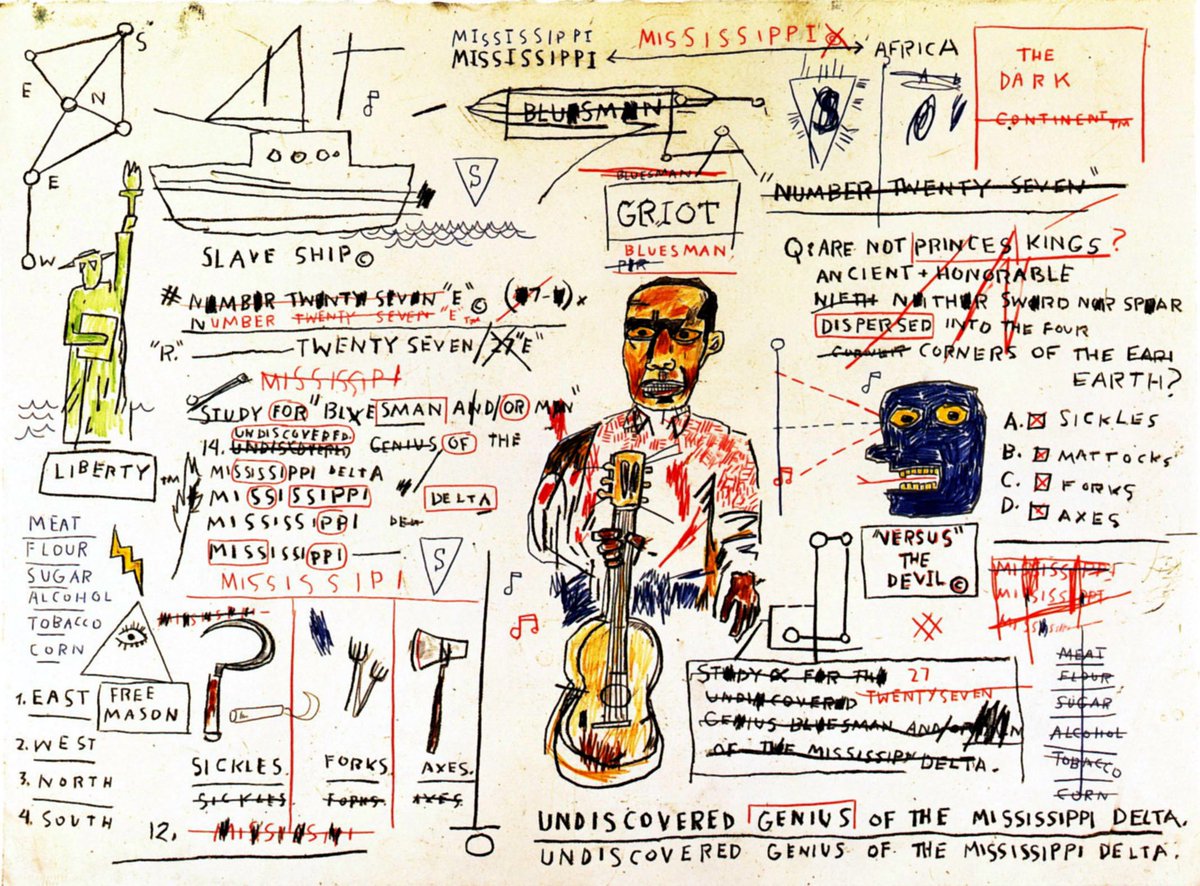 S
E
N
E
W
MISSISSIPPI
MISSISSIPPI
MISSISSIPPI
AFRICA
THE
DARK
CONTINENT™
BLUESMAN
S
S
BLUESMAN
GRIOT
BLUESMAN
"NUMBER TWENTY SEVEN"
SLAVE SHIP©
Q: ARE NOT PRINCES KINGS?
ANCIENT + HONORABLE
NEITHER SWORD NOR SPEAR
DISPERSED INTO THE FOUR
CORNERS OF THE EARI
EARTH?
# NUMBER TWENTY SEVEN "E"©
NUMBER TWENTY SEVEN "E"™
"R." TWENTY SEVEN / 27 "E"
MISSISSIPI
STUDY FOR "BLUESMAN AND/OR MEN"
UNDISCOVERED
14. UNDISCOVERED GENIUS OF THE
MISSISSIPPI DELTA
MISSISSIPPI DELTA
MISSISSIPPI DEL
MISSISSIPPI
S
MISSISSIPI
LIBERTY™
MEAT
FLOUR
SUGAR
ALCOHOL
TOBACCO
CORN
FREE
MASON
1. EAST
2. WEST
3. NORTH
4. SOUTH
SICKLES.
SICKLES
FORKS.
FORKS
AXES.
AXES
12.
A. SICKLES
B. MATTOCKS
C. FORKS
D. AXES
"VERSUS"
THE
DEVIL©
MISSISSIPPI
MISSISSIPPI
MEAT
FLOUR
SUGAR
ALCOHOL
TOBACCO
CORN
STUDY FOR THE 27
UNDISCOVERED TWENTYSEVEN
GENIUS BLUESMAN AND/OR
OF THE MISSISSIPPI DELTA.
UNDISCOVERED GENIUS OF THE MISSISSIPPI DELTA.
UNDISCOVERED GENIUS OF THE MISSISSIPPI DELTA.